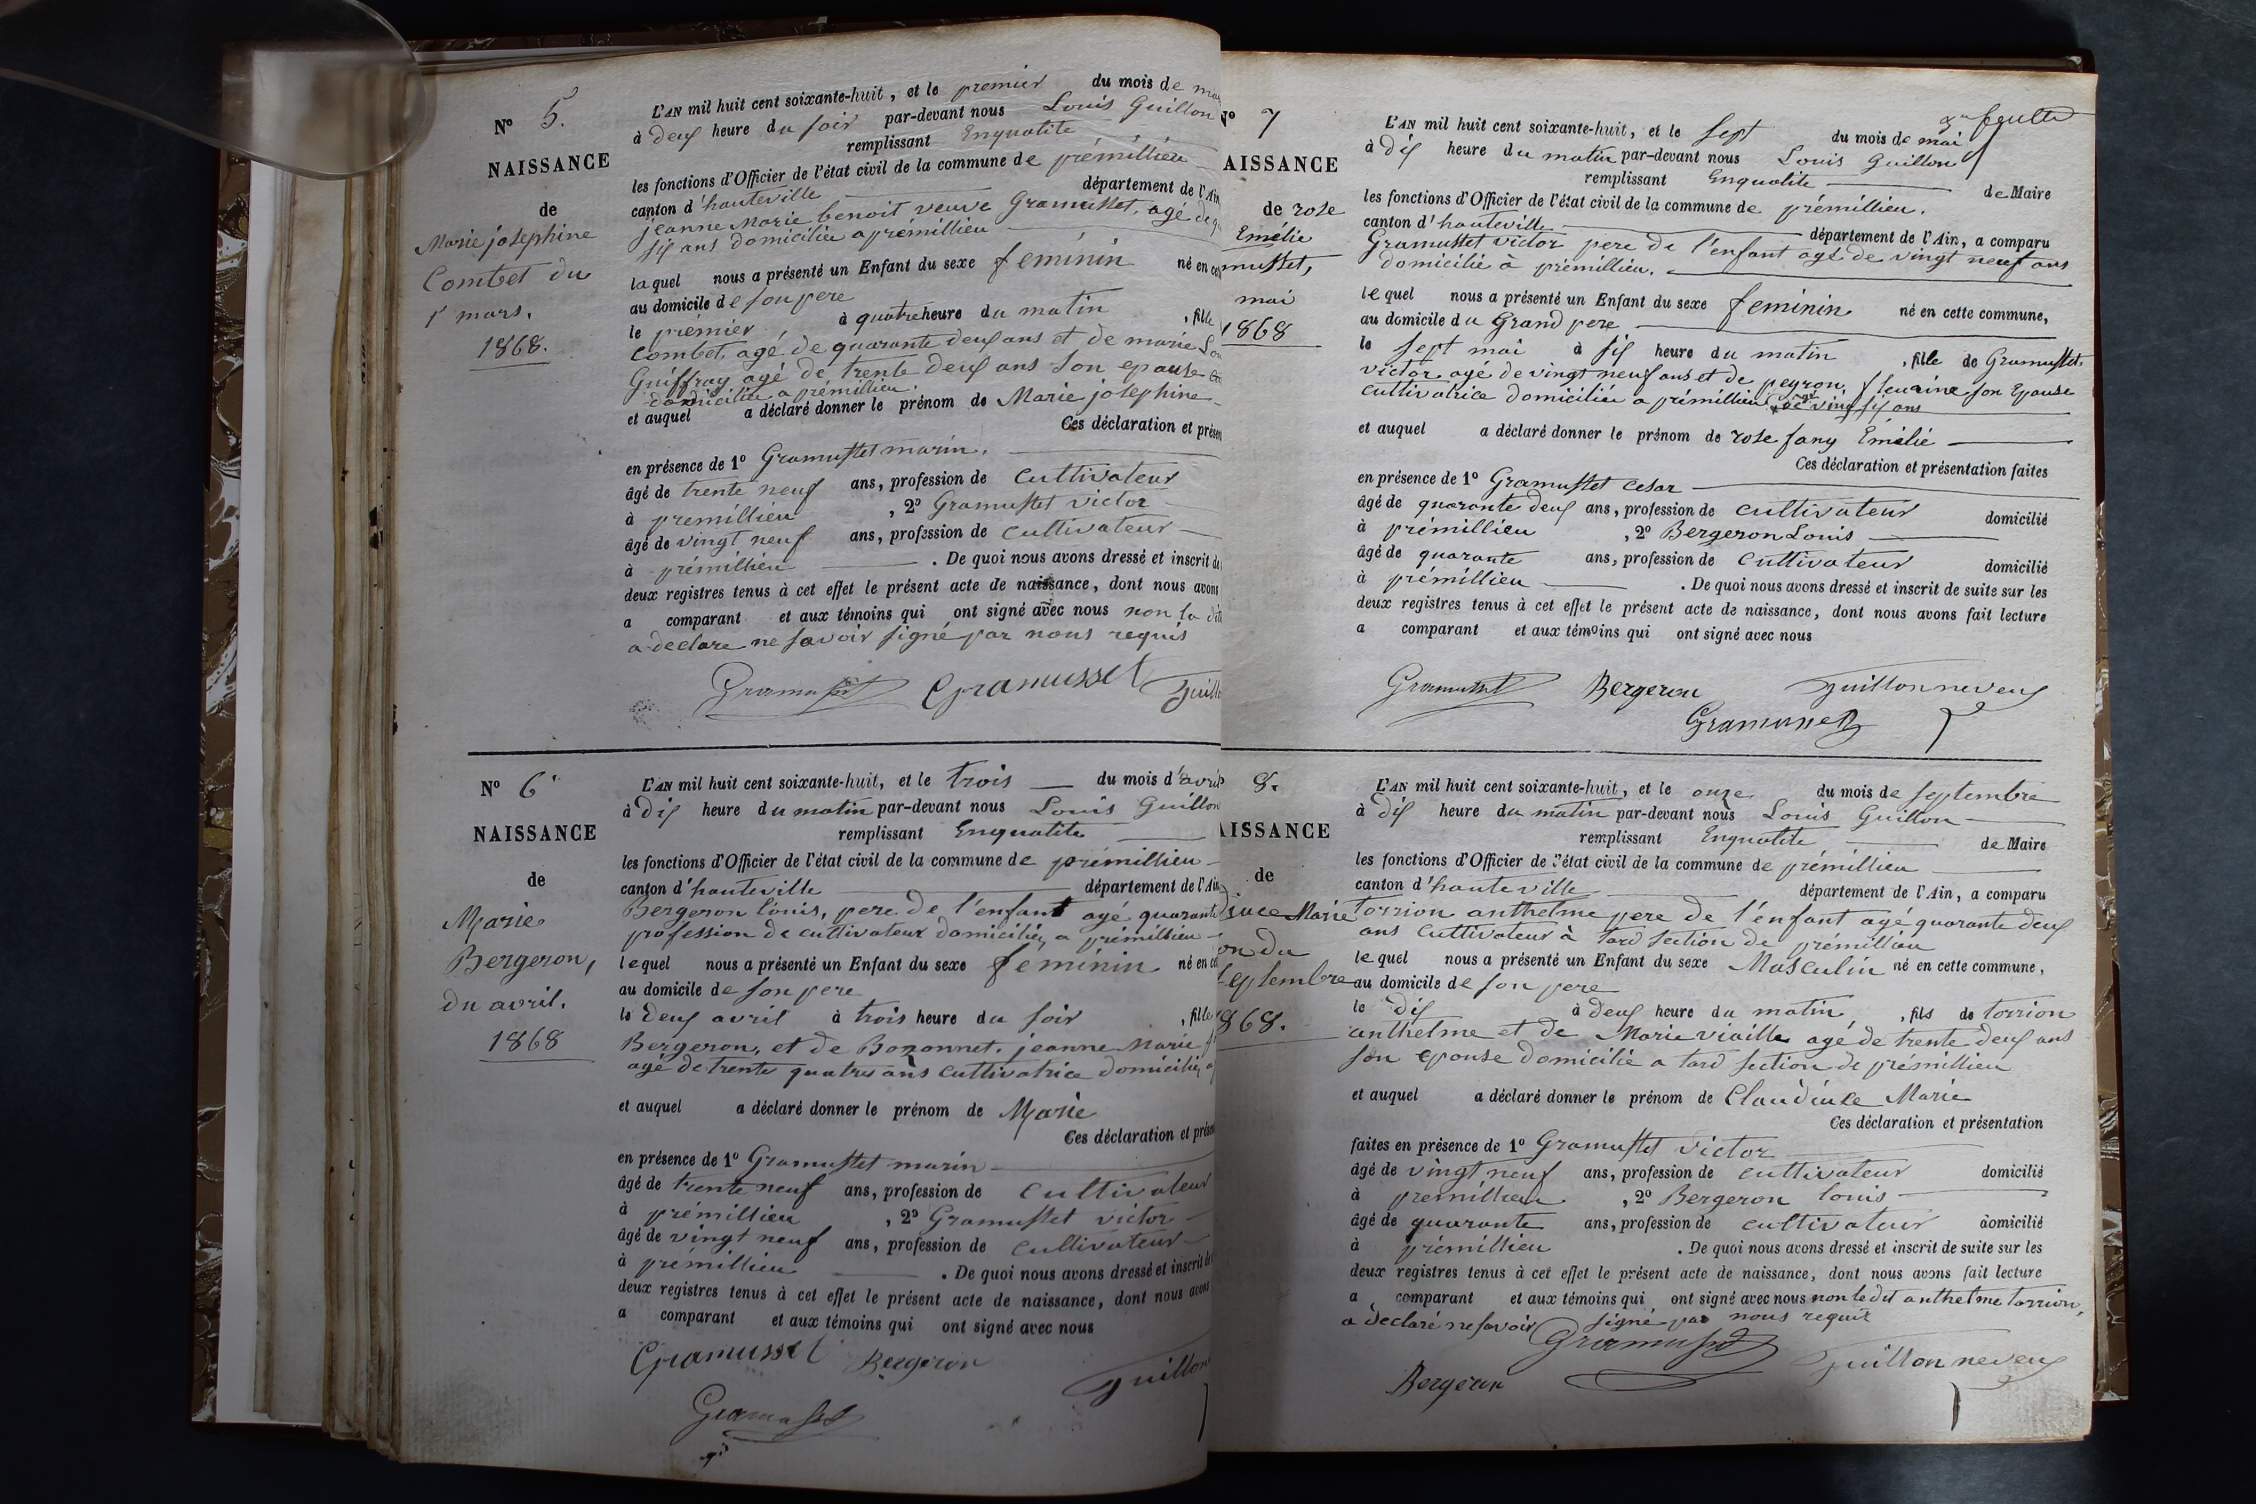 N° 5.
NAISSANCE
de
Marie josephine
Combet du
1r mars.
1868.
L'AN mil huit cent soixante-huit, et le premier du mois de
à deux heure du soir par-devant nous Louis Guillon
remplissant Enqualité
les fonctions d'Officier de l'état civil de la commune de prémillieu
canton d'hauteville département de l'Ain
jeanne Marie benoit veuve Gramusset, agé de
six ans domicilieé a premillieu
laquel nous a présenté un Enfant du sexe feminin né en
au domicile de son pere
le premier, à quatre heure du matin, fille
Combet, agé de quarante deux ans et de marie
Guiffray agé de trente deux ans son epouse
domiciliée a prémillieu.
et auquel a déclaré donner le prénom de Marie josephine
Ces déclaration et
en présence de 1° Gramusset marin.
âgé de trente neuf ans, profession de cultivateur
à premillieu, 2° Gramusset victor
âgé de vingt neuf ans, profession de cultivateur
à prémillieu. De quoi nous avons dressé et inscrit
deux registres tenus à cet effet le présent acte de naissance, dont nous avons
a comparant et aux témoins qui ont signé avec nous non la
a declare ne savoir signé par nous requis
Gramusset Gramusset
N° 6
NAISSANCE
de
Marie
Bergeron,
du avril.
1868
L'AN mil huit cent soixante-huit, et le trois du mois d'avril
à dix heure du matin par-devant nous Louis Guillon
remplissant Enqualité
les fonctions d'Officier de l'état civil de la commune de prémillieu
canton d'hauteville département de l'Ain
Bergeron louis, pere de l'enfant agé quarante
profession de cultivateur domiciliée a prémillieu
lequel nous a présenté un Enfant du sexe feminin né en
au domicile de son pere
le deux avril à trois heure du soir, fille
Bergeron, et de Bozonnet. jeanne Marie
agé de trente quatres ans cultivatrice domiciliée
et auquel a déclaré donner le prénom de Marie
Ces déclaration et
en présence de 1° Gramusset marin
âgé de trente neuf ans, profession de cultivateur
à prémillieu, 2° Gramusset victor
âgé de vingt neuf ans, profession de cultivateur
à prémillieu. De quoi nous avons dressé et inscrit
deux registres tenus à cet effet le présent acte de naissance, dont nous avons
a comparant et aux témoins qui ont signé avec nous
Gramusset Bergeron Guillon
Gramusset
N° 7
AISSANCE
de rose
Emélie
musset,
mai
1868
L'AN mil huit cent soixante-huit, et le sept du mois de mai
à dix heure du matin par-devant nous Louis Guillon
remplissant Enqualité de Maire
les fonctions d'Officier de l'état civil de la commune de prémillieu.
canton d'hauteville département de l'Ain, a comparu
Gramusset victor pere de l'enfant agé de vingt neuf ans
domicilié à prémillieu.
lequel nous a présenté un Enfant du sexe feminin né en cette commune,
au domicile du Grand pere
le sept mai à six heure du matin, fille de Gramusset
victor agé de vingt neuf ans et de peyron, fleurine son Epouse
cultivatrice domiciliée a prémillieu agé de vingt six ans
et auquel a déclaré donner le prénom de rose fany Émélie
Ces déclaration et présentation faites
en présence de 1° Gramusset Cesar
âgé de quarante deux ans, profession de cultivateur domicilié
à prémillieu, 2° Bergeron Louis
âgé de quarante ans, profession de cultivateur domicilié
à prémillieu. De quoi nous avons dressé et inscrit de suite sur les
deux registres tenus à cet effet le présent acte de naissance, dont nous avons fait lecture
a comparant et aux témoins qui ont signé avec nous
Gramusset Bergeron Guillon neveux
Gramusset
8.
AISSANCE
de
Marie
on du
Septembre
868.
L'AN mil huit cent soixante-huit, et le onze du mois de septembre
à dix heure du matin par-devant nous Louis Guillon
remplissant Enqualité de Maire
les fonctions d'Officier de l'état civil de la commune de prémillieu
canton d'hauteville département de l'Ain, a comparu
torrion anthelme pere de l'enfant agé quarante deux
ans cultivateur à tard section de prémillieu
lequel nous a présenté un Enfant du sexe Masculin né en cette commune,
au domicile de son pere
le dix à deux heure du matin, fils de torrion
anthelme et de Marie viaille agé de trente deux ans
son epouse domicilié a tard section de prémillieu
et auquel a déclaré donner le prénom de Marie
Ces déclaration et présentation
faites en présence de 1° Gramusset victor
âgé de vingt neuf ans, profession de cultivateur domicilié
à premillieu, 2° Bergeron louis
âgé de quarante ans, profession de cultivateur domicilié
à prémillieu. De quoi nous avons dressé et inscrit de suite sur les
deux registres tenus à cet effet le présent acte de naissance, dont nous avons fait lecture
a comparant et aux témoins qui ont signé avec nous non le dit anthelme torrion,
a declaré ne savoir signé par nous requit
Gramusset Guillon neveux
Bergeron